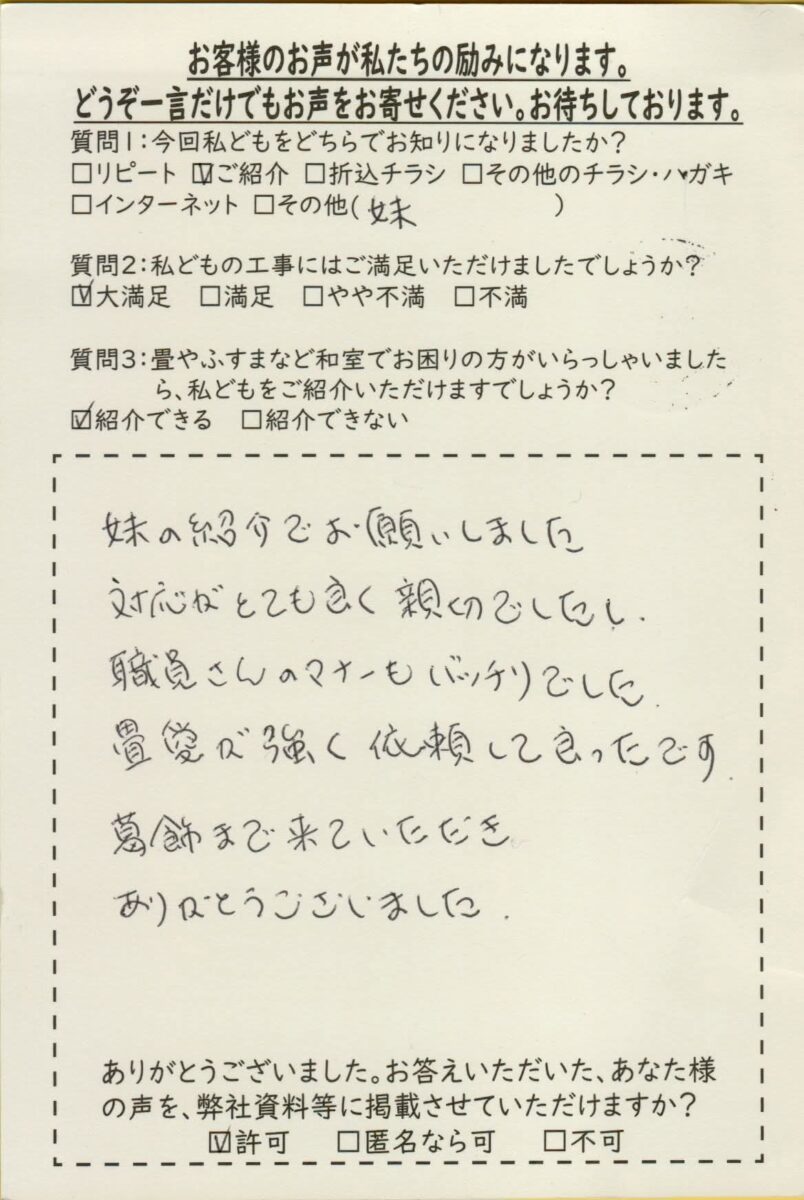 お客様のお声が私たちの励みになります。
どうぞ一言だけでもお声をお寄せください。お待ちしております。
質問1:今回私どもをどちらでお知りになりましたか?
□リピート ☑ご紹介 □折込チラシ □その他のチラシ・ハガキ
□インターネット □その他(妹)
質問2:私どもの工事にはご満足いただけましたでしょうか?
☑大満足 □満足 □やや不満 □不満
質問3:畳やふすまなど和室でお困りの方がいらっしゃいました
ら、私どもをご紹介いただけますでしょうか?
☑紹介できる □紹介できない
妹の紹介でお願いしました
対応がとても良く親切でしたし.
職員さんのマナーもバッチリでした.
畳愛が強く依頼して良ったです.
葛飾まで来ていただき
ありがとうございました.
ありがとうございました。お答えいただいた、あなた様
の声を、弊社資料等に掲載させていただけますか?
☑許可 □匿名なら可 □不可